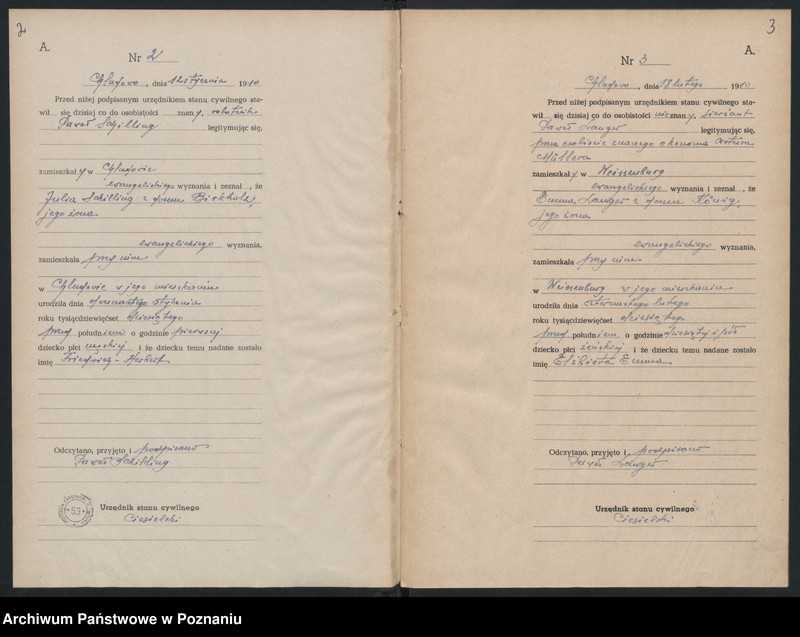 2
A.
Nr 2
, dnia 12 stycznia 1910
Przed niżej podpisanym urzędnikiem stanu cywilnego sta-
wił się dzisiaj co do osobistości znany, robotnik
Paweł Schilling legitymując się,
zamieszkały w
ewangelickiego wyznania i zeznał , że
Julia Schilling z domu Birkholz,
jego żona
ewangelickiego wyznania,
zamieszkała przy nim
w w jego mieszkaniu
urodziła dnia dwunastego stycznia
roku tysiącdziewięćset dziesiątego
przed południem o godzinie pierwszej
dziecko płci męskiej i że dziecku temu nadane zostało
imię Friedrich-Herbert
Odczytano, przyjęto i podpisano
Paweł Schilling
53
Urzędnik stanu cywilnego
Ciesielski
3
A.
Nr 3
, dnia 18 lutego 1910
Przed niżej podpisanym urzędnikiem stanu cywilnego sta-
wił się dzisiaj co do osobistości nieznany, sierżant
Paweł Langer legitymując się,
przez osobiście znanego ekonoma Artura
Müllera
zamieszkały w Weissenburg
ewangelickiego wyznania i zeznał , że
Emma Langer z domu König,
jego żona
ewangelickiego wyznania,
zamieszkała przy nim
w Weissenburg w jego mieszkaniu
urodziła dnia czternastego lutego
roku tysiącdziewięćset dziesiątego
przed południem o godzinie dziesiątej i pół
dziecko płci żeńskiej i że dziecku temu nadane zostało
imię Elżbieta Emma
Odczytano, przyjęto i podpisano
Paweł Langer
Urzędnik stanu cywilnego
Ciesielski
Archiwum Państwowe w Poznaniu